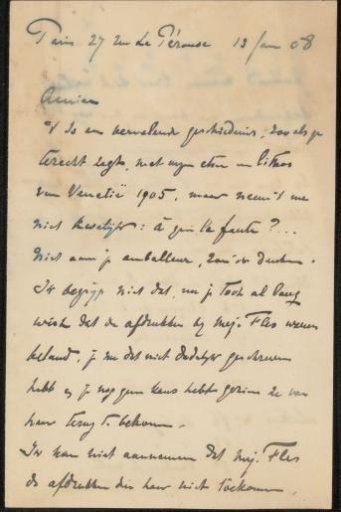 Paris 27 rue La Pérouse 13 Jan 08
Amice
't Is een vervelende geschiedenis, zooals je
terecht zegt, met mijn etsen en lithos
van Venetië 1905, maar neem 't me
niet kwalijk: à qui la faute? ...
Niet aan je emballeur, zou'k denken.
Ik begrijp niet dat, nu je toch al lang
wist dat de afdrukken bij Mej. Fles waren
beland, je me dat niet dadelijk geschreven
hebt en je nog geen kans hebt gezien ze van
haar terug te bekomen.
Ik kan niet aannemen dat Mej. Fles
de afdrukken die haar niet toekomen,